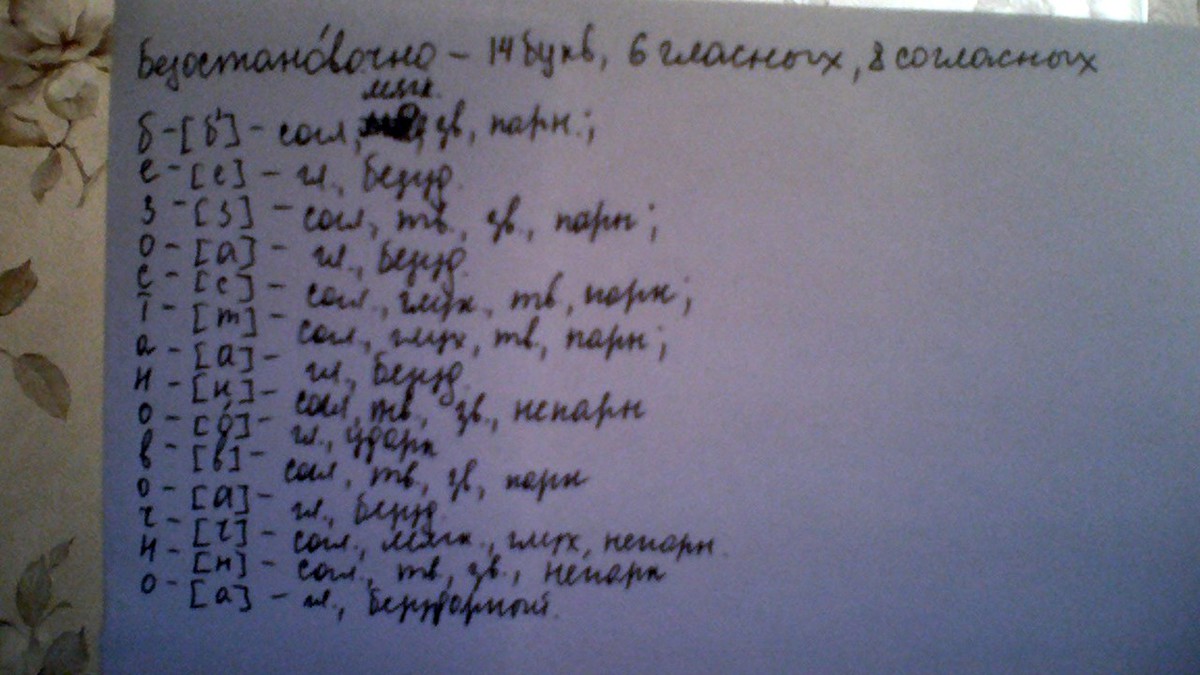 Безостано́вочно – 14 букв, 6 гласных, 8 согласных
мягк.
б – [б'] – согл, зв, парн.;
е – [е] – гл., безуд.
з – [з] – согл, тв., зв., парн;
о – [а] – гл., безуд.
с – [с] – согл., глух., тв, парн;
т – [т] – согл., глух, тв., парн;
а – [а] – гл., безуд.
н – [н] – согл, тв., зв., непарн
о – [о́] – гл., ударн
в – [в] – согл, тв., зв, парн
о – [а] – гл., безуд.
ч – [ч] – согл., мягк., глух, непарн.
н – [н] – согл., тв, зв., непарн
о – [а] – гл., безударный.